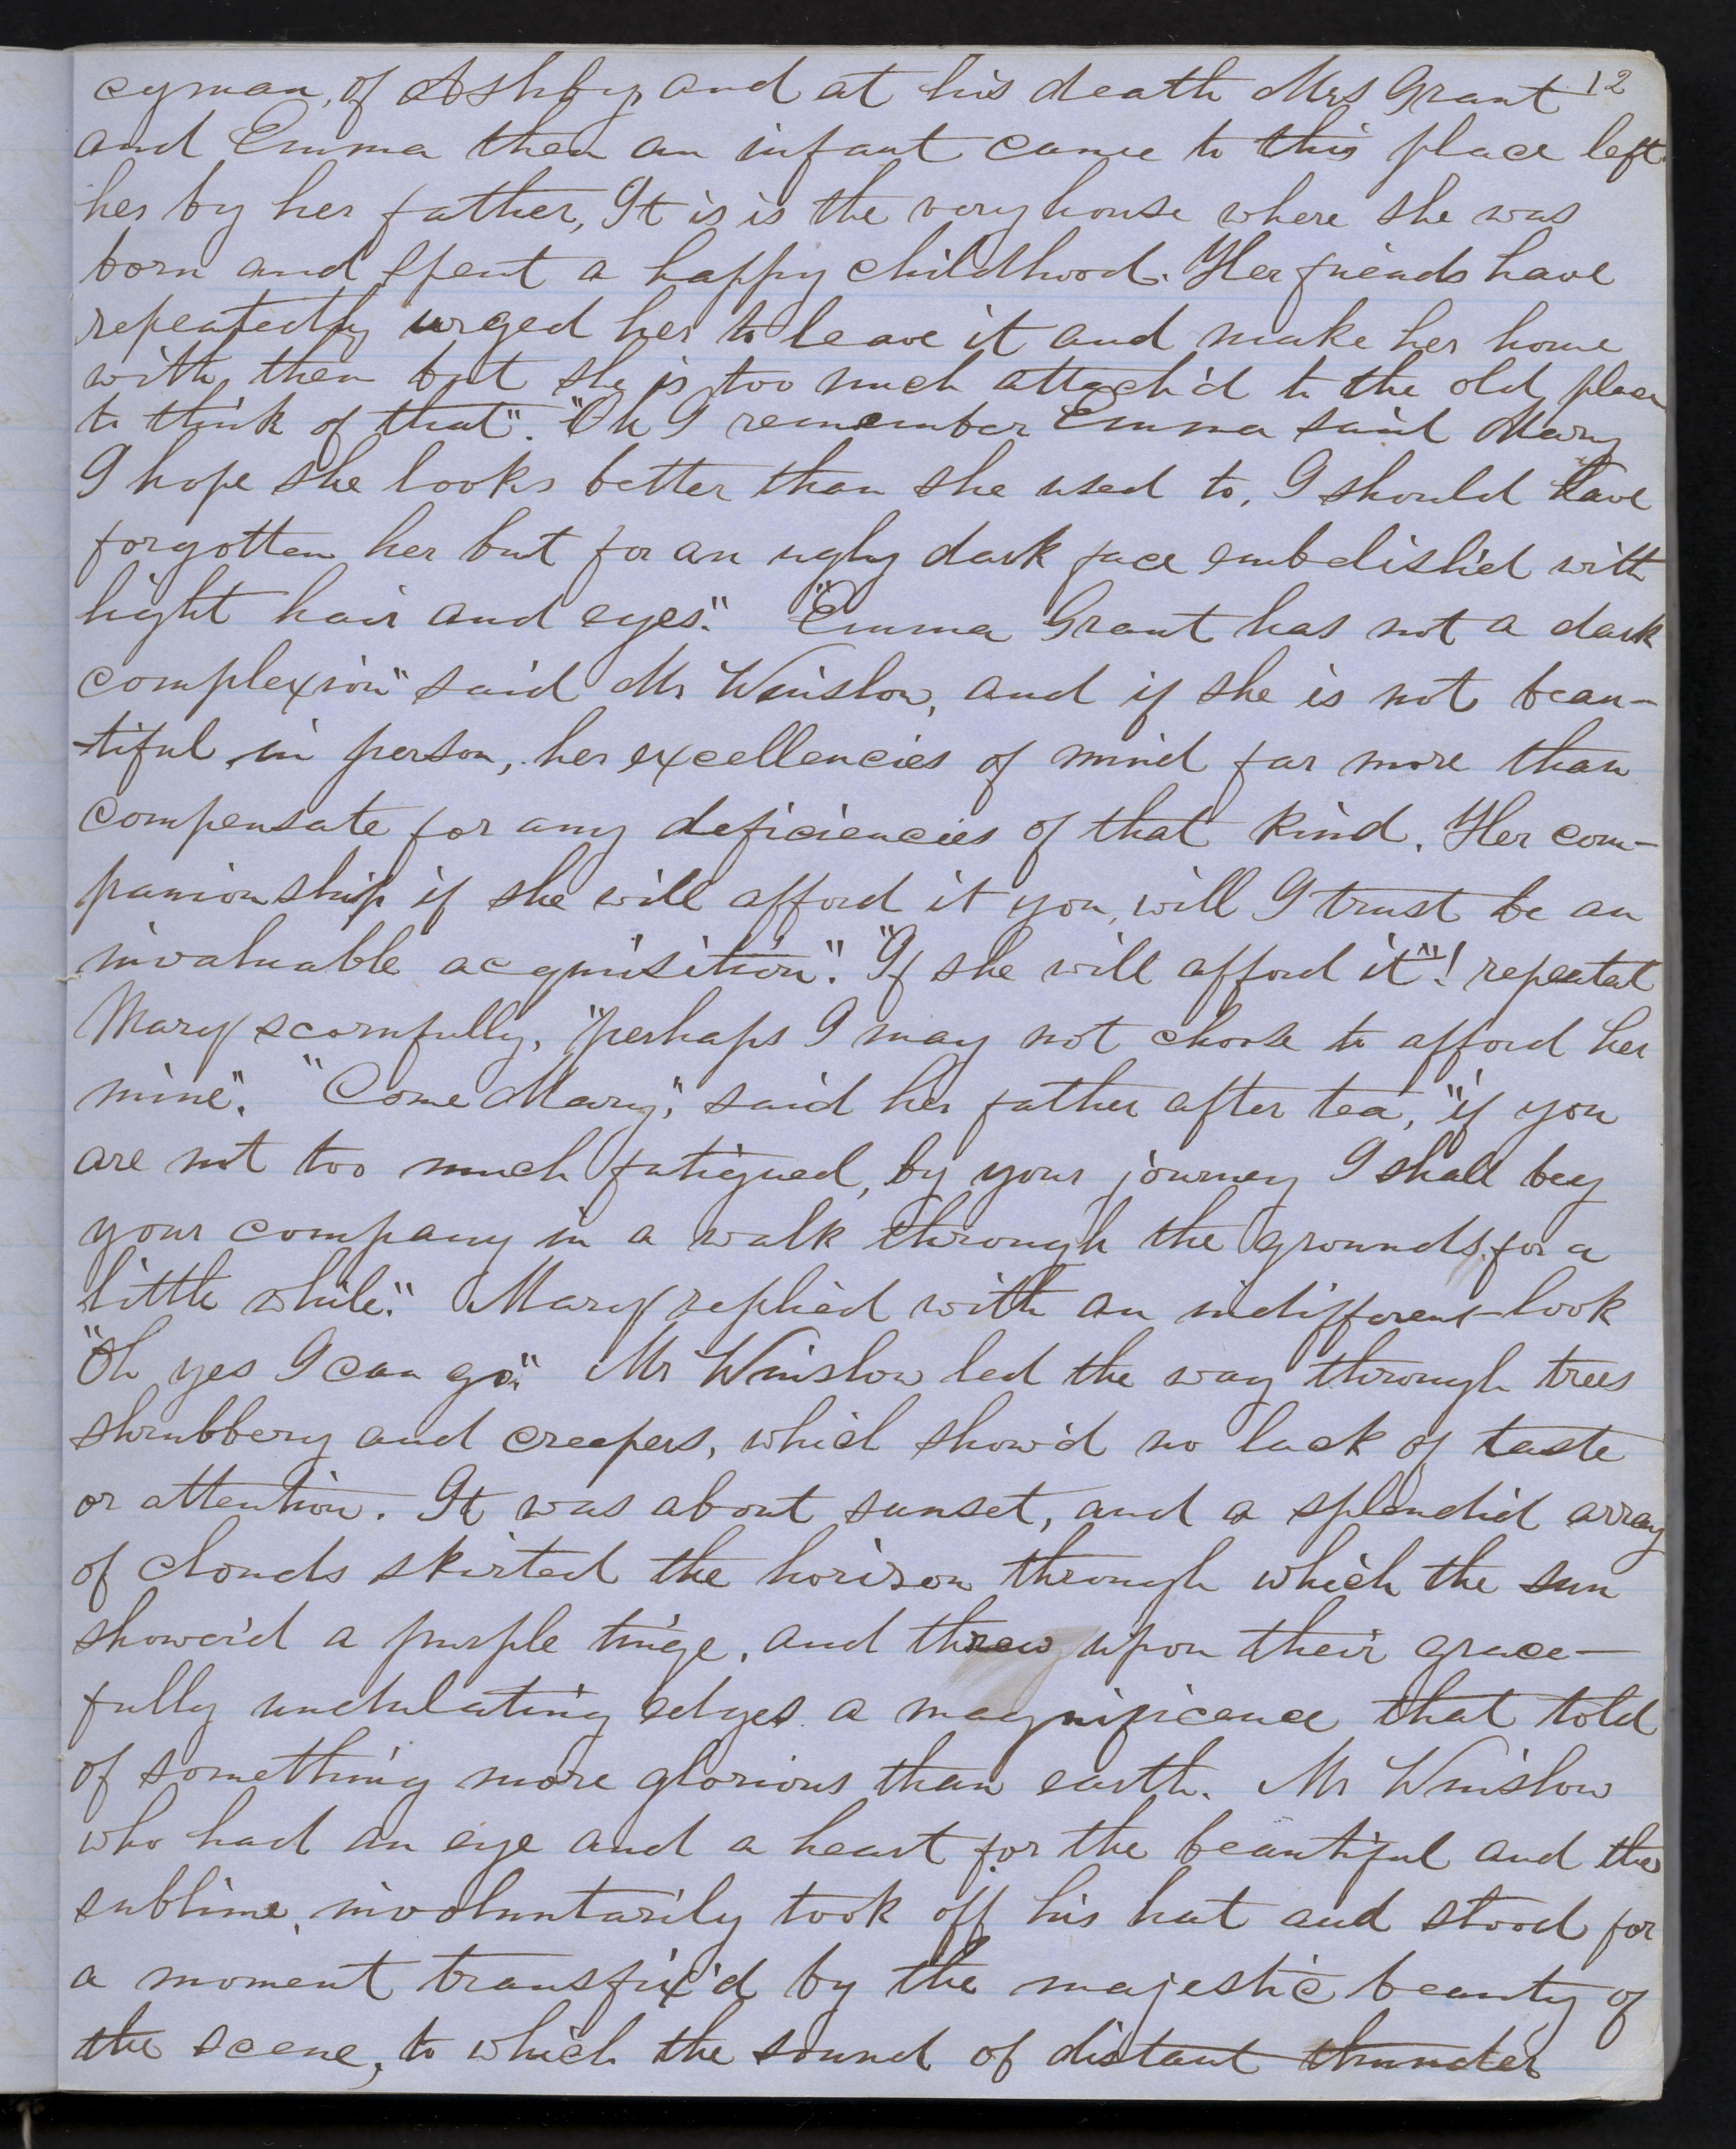 cyman, of Ashby, and at his death Mrs Grant 12
and Emma then an infant came to this place left
her by her father, It is is the very house where she was
born and spent a happy childhood. Her friends have
repeatedly urged her to leave it and make her home
with them but she is too much attach'd to the old place
to think of that". "Oh I remember Emma said Mary
I hope she looks better than she used to, I should have
forgotten her but for an ugly dark face embelish'd with
light hair and eyes". "Emma Grant has not a dark
complexion" said Mr Winslow, and if she is not beau-
-tiful in person, her excellencies of mind far more than
compensate for any deficiencies of that kind. Her com-
panionship if she will afford it you, will I trust be an
invaluable acquisition". "If she will afford it"! repeatat
Mary scornfully, "perhaps I may not choose to afford her
mine". "Come Mary", said her father after tea, "if you
are not too much fatigued, by your journey I shall beg
your company in a walk through the grounds for a
little while". Mary replied with an indifferent look
"Oh yes I can go". Mr Winslow led the way through trees
shrubbery and creepers, which show'd no lack of taste
or attention. It was about sunset, and a splendid array
of clouds skirted the horizon through which the sun
shower'd a purple tinge, and threw upon their grace-
fully undulating edges a magnificence that told
of something more glorious than earth. Mr Winslow
who had an eye and a heart for the beautiful and the
sublime, involuntarily took off his hat and stood for
a moment transfix'd by the majestic beauty of
the scene, to which the sound of distant thunder